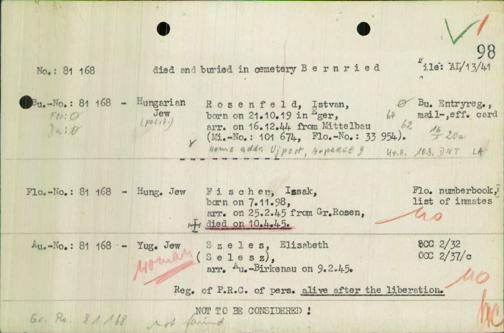 98
No.: 81 168 died and buried in cemetery B e r n r i e d
Bu.-No.: 81 168 - Hungarian R o s e n f e l d , Istvan, Bu. Entryreg.,
Jew born on 21.10.19 in Eger, mail-,eff. card
arr. on 16.12.44 from Mittelbau
(Mi.-No.: 101 674, Flo.-No.: 33 954).
Flo.-No.: 81 168 - Hung. Jew F i s c h e r , Issak, Flo. numberbook,
born on 7.11.98, list of inmates
arr. on 25.2.45 from Gr.Rosen,
died on 10.4.45. no
Au.-No.: 81 168 - Yug. Jew S z e l e s , Elizabeth OCC 2/32
woman ( S e l e s z ), OCC 2/37/c
arr. Au.-Birkenau on 9.2.45.
Reg. of P.R.C. of pers. alive after the liberation. no
NOT TO BE CONSIDERED !
Gr. Ro. 81168 not found